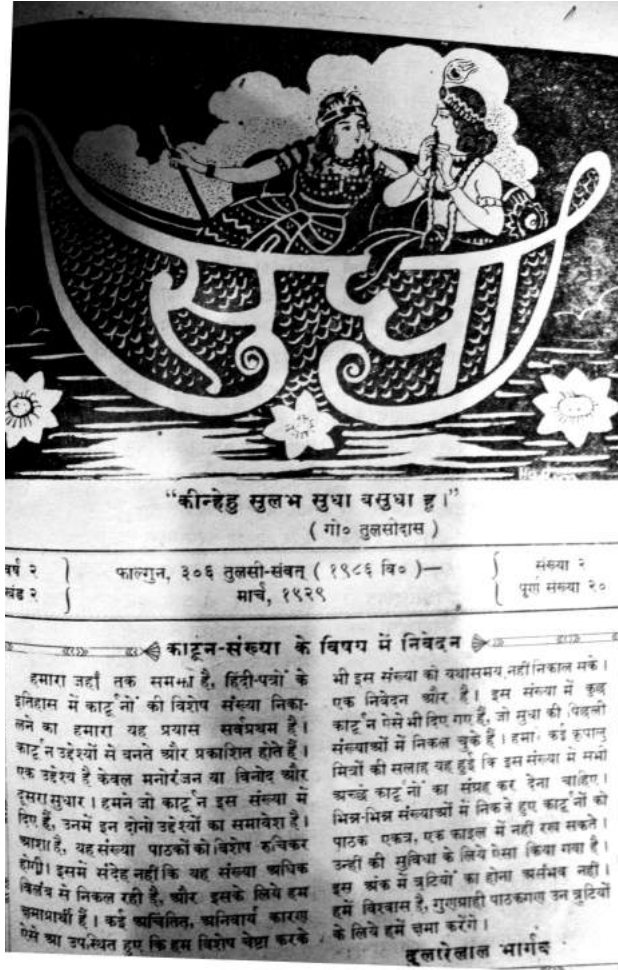 सुधा
“कीन्हेहु सुलभ सुधा बसुधा हू।”
( गो० तुलसीदास )
वर्ष २
खंड २
फाल्गुन, ३०६ तुलसी-संवत् ( १९८६ वि० )—
मार्च, १९२९
संख्या २
पूर्ण संख्या २०
कार्टून-संख्या के विषय में निवेदन
हमारा जहाँ तक समझ है, हिंदी-पत्रों के
इतिहास में कार्टूनों की विशेष संख्या निका-
लने का हमारा यह प्रयास सर्वप्रथम है।
कार्टून उद्देश्यों से बनते और प्रकाशित होते हैं।
एक उद्देश्य है केवल मनोरंजन या विनोद और
दूसरा सुधार। हमने जो कार्टून इस संख्या में
दिए हैं, उनमें इन दोनो उद्देश्यों का समावेश है।
आशा है, यह संख्या पाठकों को विशेष रुचिकर
होगी। इसमें संदेह नहीं कि यह संख्या अधिक
विलंब से निकल रही है, और इसके लिये हम
क्षमाप्रार्थी हैं। कई अचिंतित, अनिवार्य कारण
ऐसे आ उपस्थित हुए कि हम विशेष चेष्टा करके
भी इस संख्या को यथासमय नहीं निकाल सके।
एक निवेदन और है। इस संख्या में कुछ
कार्टून ऐसे भी दिए गए हैं, जो सुधा की पिछली
संख्याओं में निकल चुके हैं। हमारे कई कृपालु
मित्रों की सलाह यह हुई कि इस संख्या में सभी
अच्छे कार्टूनों का संग्रह कर देना चाहिए।
भिन्न-भिन्न संख्याओं में निकले हुए कार्टूनों को
पाठक एकत्र, एक फ़ाइल में नहीं रख सकते।
उन्हीं की सुविधा के लिये ऐसा किया गया है।
इस अंक में त्रुटियों का होना असंभव नहीं।
हमें विश्वास है, गुणग्राही पाठकगण उन त्रुटियों
के लिये हमें क्षमा करेंगे।
दुलारेलाल भार्गव